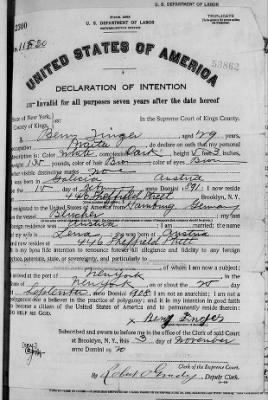 U. S. DEPARTMENT OF LABOR
U. S. DEPARTMENT OF LABOR
TRIPLICATE
No 11520
UNITED STATES OF AMERICA
53862
DECLARATION OF INTENTION
Invalid for all purposes seven years after the date hereof
State of New York,
County of Kings,
In the Supreme Court of Kings County.
aged 29 years,
occupation Waiter do declare on oath that my personal
description is: Color White, complexion Dark, height 5 feet 3 inches,
weight 135 pounds, color of hair Bro, color of eyes Brown
other visible distinctive marks None
born in Galicia Austria
on the 15 day of anno Domini 1891; I now reside
at 446 Sheffield Brooklyn, N. Y.
emigrated to the United States of America from Hamburg Germany
on the vessel Blucher; my last
foreign residence was Austria; I am married; the name
of my wife is Lena; she was born at Austria
and now resides at 446 Sheffield
It is my bona fide intention to renounce forever all allegiance and fidelity to any foreign
prince, potentate, state, or sovereignty, and particularly to
of whom I am now a subject;
I arrived at the port of New York, in the
State of New York, on or about the day
of September, anno Domini 1908; I am not an anarchist; I am not a
polygamist nor a believer in the practice of polygamy; and it is my intention in good faith
to become a citizen of the United States of America and to permanently reside therein:
SO HELP ME GOD.
Subscribed and sworn to before me in the office of the Clerk of said Court
at Brooklyn, N. Y., this 3 day of November
anno Domini 19 20
Clerk of the Supreme Court.
By Deputy Clerk.